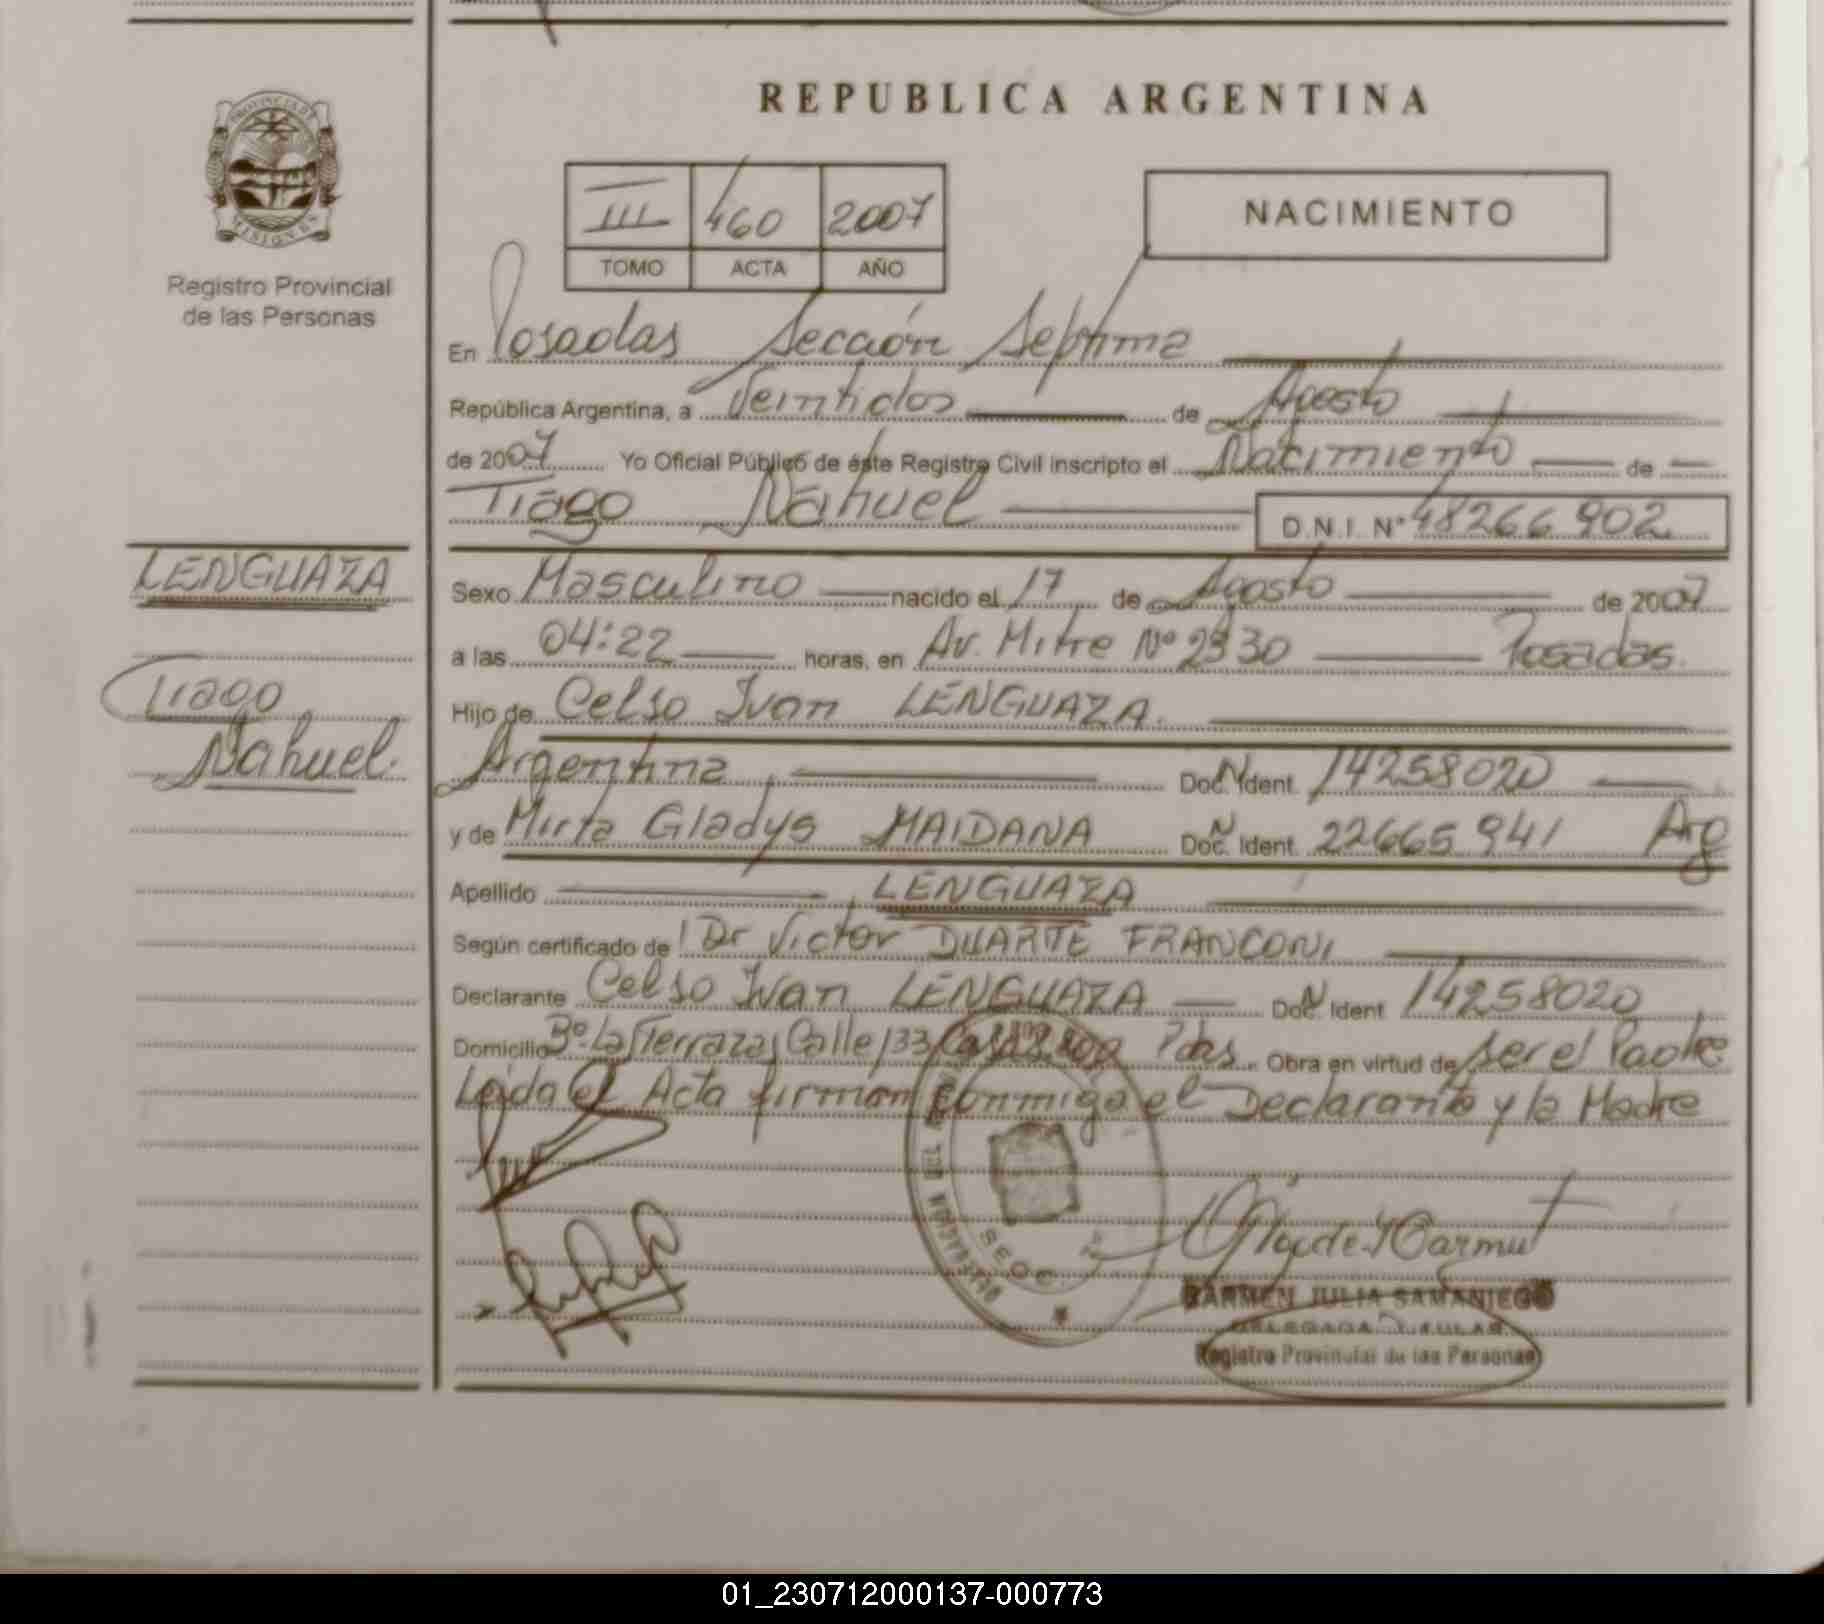 REPUBLICA ARGENTINA
PROVINCIA DE
MISIONES
Registro Provincial
de las Personas
III 460 2007
TOMO ACTA AÑO
NACIMIENTO
En Posadas Sección Septima
República Argentina, a Veintidos de Agosto
de 2007 Yo Oficial Público de éste Registro Civil inscripto el Nacimiento de
Tiago Nahuel D.N.I. Nº 48266902
LENGUAZA
Tiago
Nahuel.
Sexo Masculino nacido el 17 de Agosto de 2007
a las 04:22 horas, en Av. Mitre Nº 2330 Posadas.
Hijo de Celso Ivan LENGUAZA.
Argentina Doc. Ident. 14258020
y de Mirta Gladys MAIDANA Doc. Ident. 22665941 Arg
Apellido LENGUAZA
Según certificado de Dr Victor DUARTE FRANCONI
Declarante Celso Ivan LENGUAZA Doc. Ident 14258020
Domicilio Bº La Terrazas Calle 133 Casa Pdas. Obra en virtud de ser el Padre
Leida el Acta firman conmigo el Declarante y la Madre
CARMEN JULIA SAMANIEGO
DELEGADA TITULAR
Registro Provincial de las Personas
01_230712000137-000773